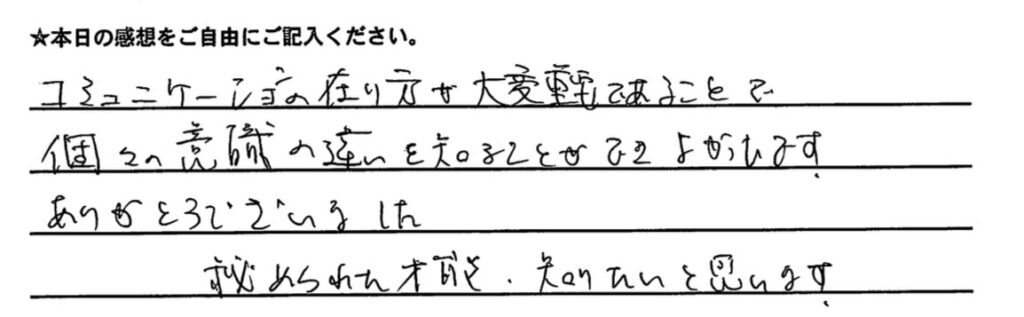 ★本日の感想をご自由にご記入ください。
コミュニケーションの在り方が大変重要であることで
個々の意識の違いを知ることができよかったです.
ありがとうございました
秘められた才能、知りたいと思います.